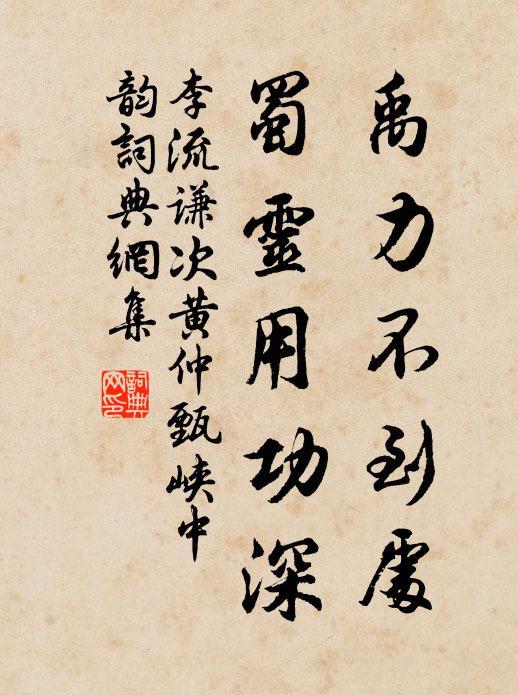 禹力不到處
蜀靈用功深
李流谦次黄仲甄峡中
韵詞典網集
詞典
网印